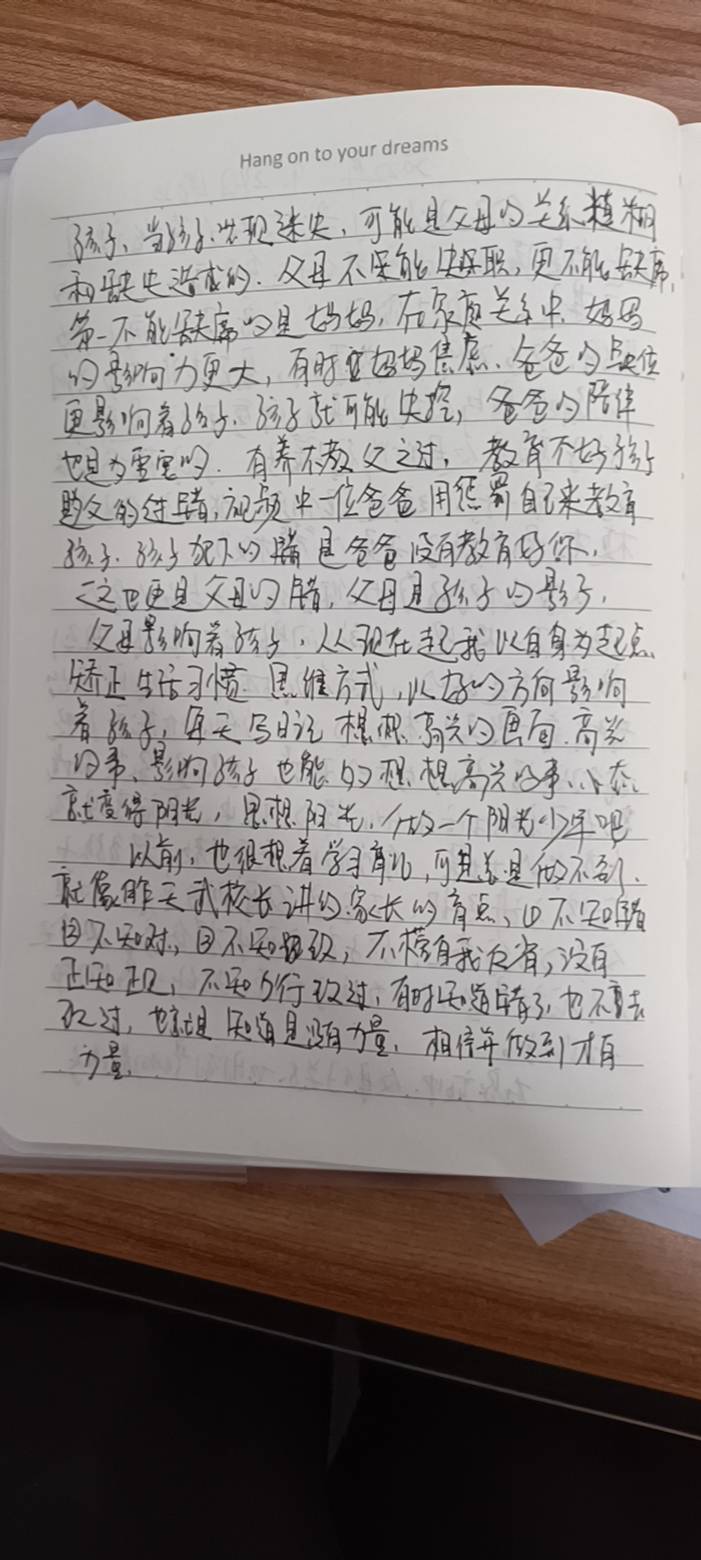 Hang on to your dreams
孩子、当孩子出现迷失，可能是父母的关系模糊
和缺失造成的. 父母不能失职，更不能缺席，
第一不能缺席的是妈妈，在家庭关系中 妈妈
的影响力更大，有时妈妈焦虑、爸爸的缺位
更影响着孩子. 孩子就可能失控，爸爸的陪伴
也是为重要的. 有养不教父之过，教育不好孩子
的过错，视频中一位爸爸用惩罚自己来教育
孩子. 孩子犯下的错是爸爸没有教育好你，
这也更是父母的错，父母是孩子的影子，
父母影响着孩子，从现在起我以自身为起点
矫正生活习惯 思维方式，以好的方向影响
着孩子，每天写日记 想想高兴的画面 高兴
的事、影响孩子也能的想想高兴的事、心态
就变得阳光，思想阳光，做一个阳光少年吧
以前，也很想着学习育儿，可是总是做不到、
就像昨天武校长讲的家长的盲点、① 不知错
② 不知对、③ 不知，不自我反省，没有
正知正，不知行改过，有时知道错了，也不去
改过，也就是知道是没有力量，相信并做到才有
力量.